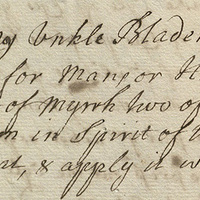 Unkle Blade
for Man, or H
of Myrrh two o
in Spirit of
, & apply it w